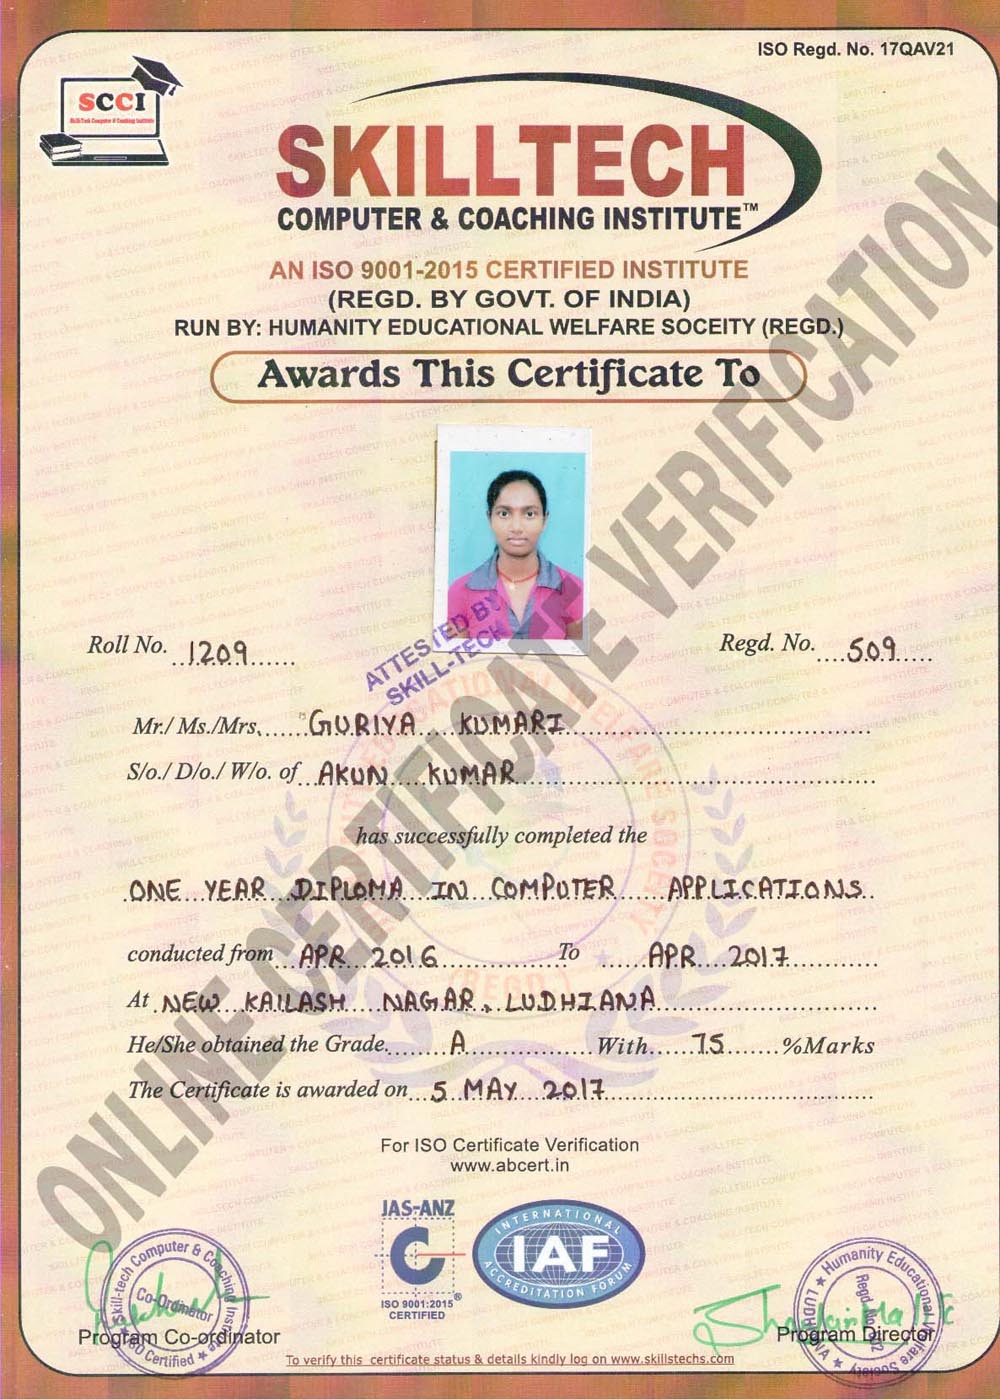 ISO Regd. No. 17QAV21
SCCI
SKILLTECH
COMPUTER & COACHING INSTITUTE™
AN ISO 9001-2015 CERTIFIED INSTITUTE
(REGD. BY GOVT. OF INDIA)
RUN BY: HUMANITY EDUCATIONAL WELFARE SOCEITY (REGD.)
Awards This Certificate To
ATTESTED BY
SKILL-TECH
Roll No. 1209
Regd. No. 509
Mr./ Ms./Mrs. GURIYA KUMARI
S/o./ D/o./ W/o. of AKUN KUMAR
has successfully completed the
ONE YEAR DIPLOMA IN COMPUTER APPLICATIONS
conducted from APR 2016 To APR 2017
At NEW KAILASH NAGAR, LUDHIANA
He/She obtained the Grade A With 75 %Marks
The Certificate is awarded on 5 MAY 2017
ONLINE CERTIFICATE VERIFICATION
For ISO Certificate Verification
www.abcert.in
JAS-ANZ
ISO 9001:2015
CERTIFIED
INTERNATIONAL
IAF
ACCREDITATION FORUM
Skill-tech Computer & Coaching Institute
Co-Ordinator
ISO Certified
Program Co-ordinator
Humanity Educational Welfare Society
LUDHIANA
Regd. No.
Program Director
To verify this certificate status & details kindly log on www.skillstechs.com